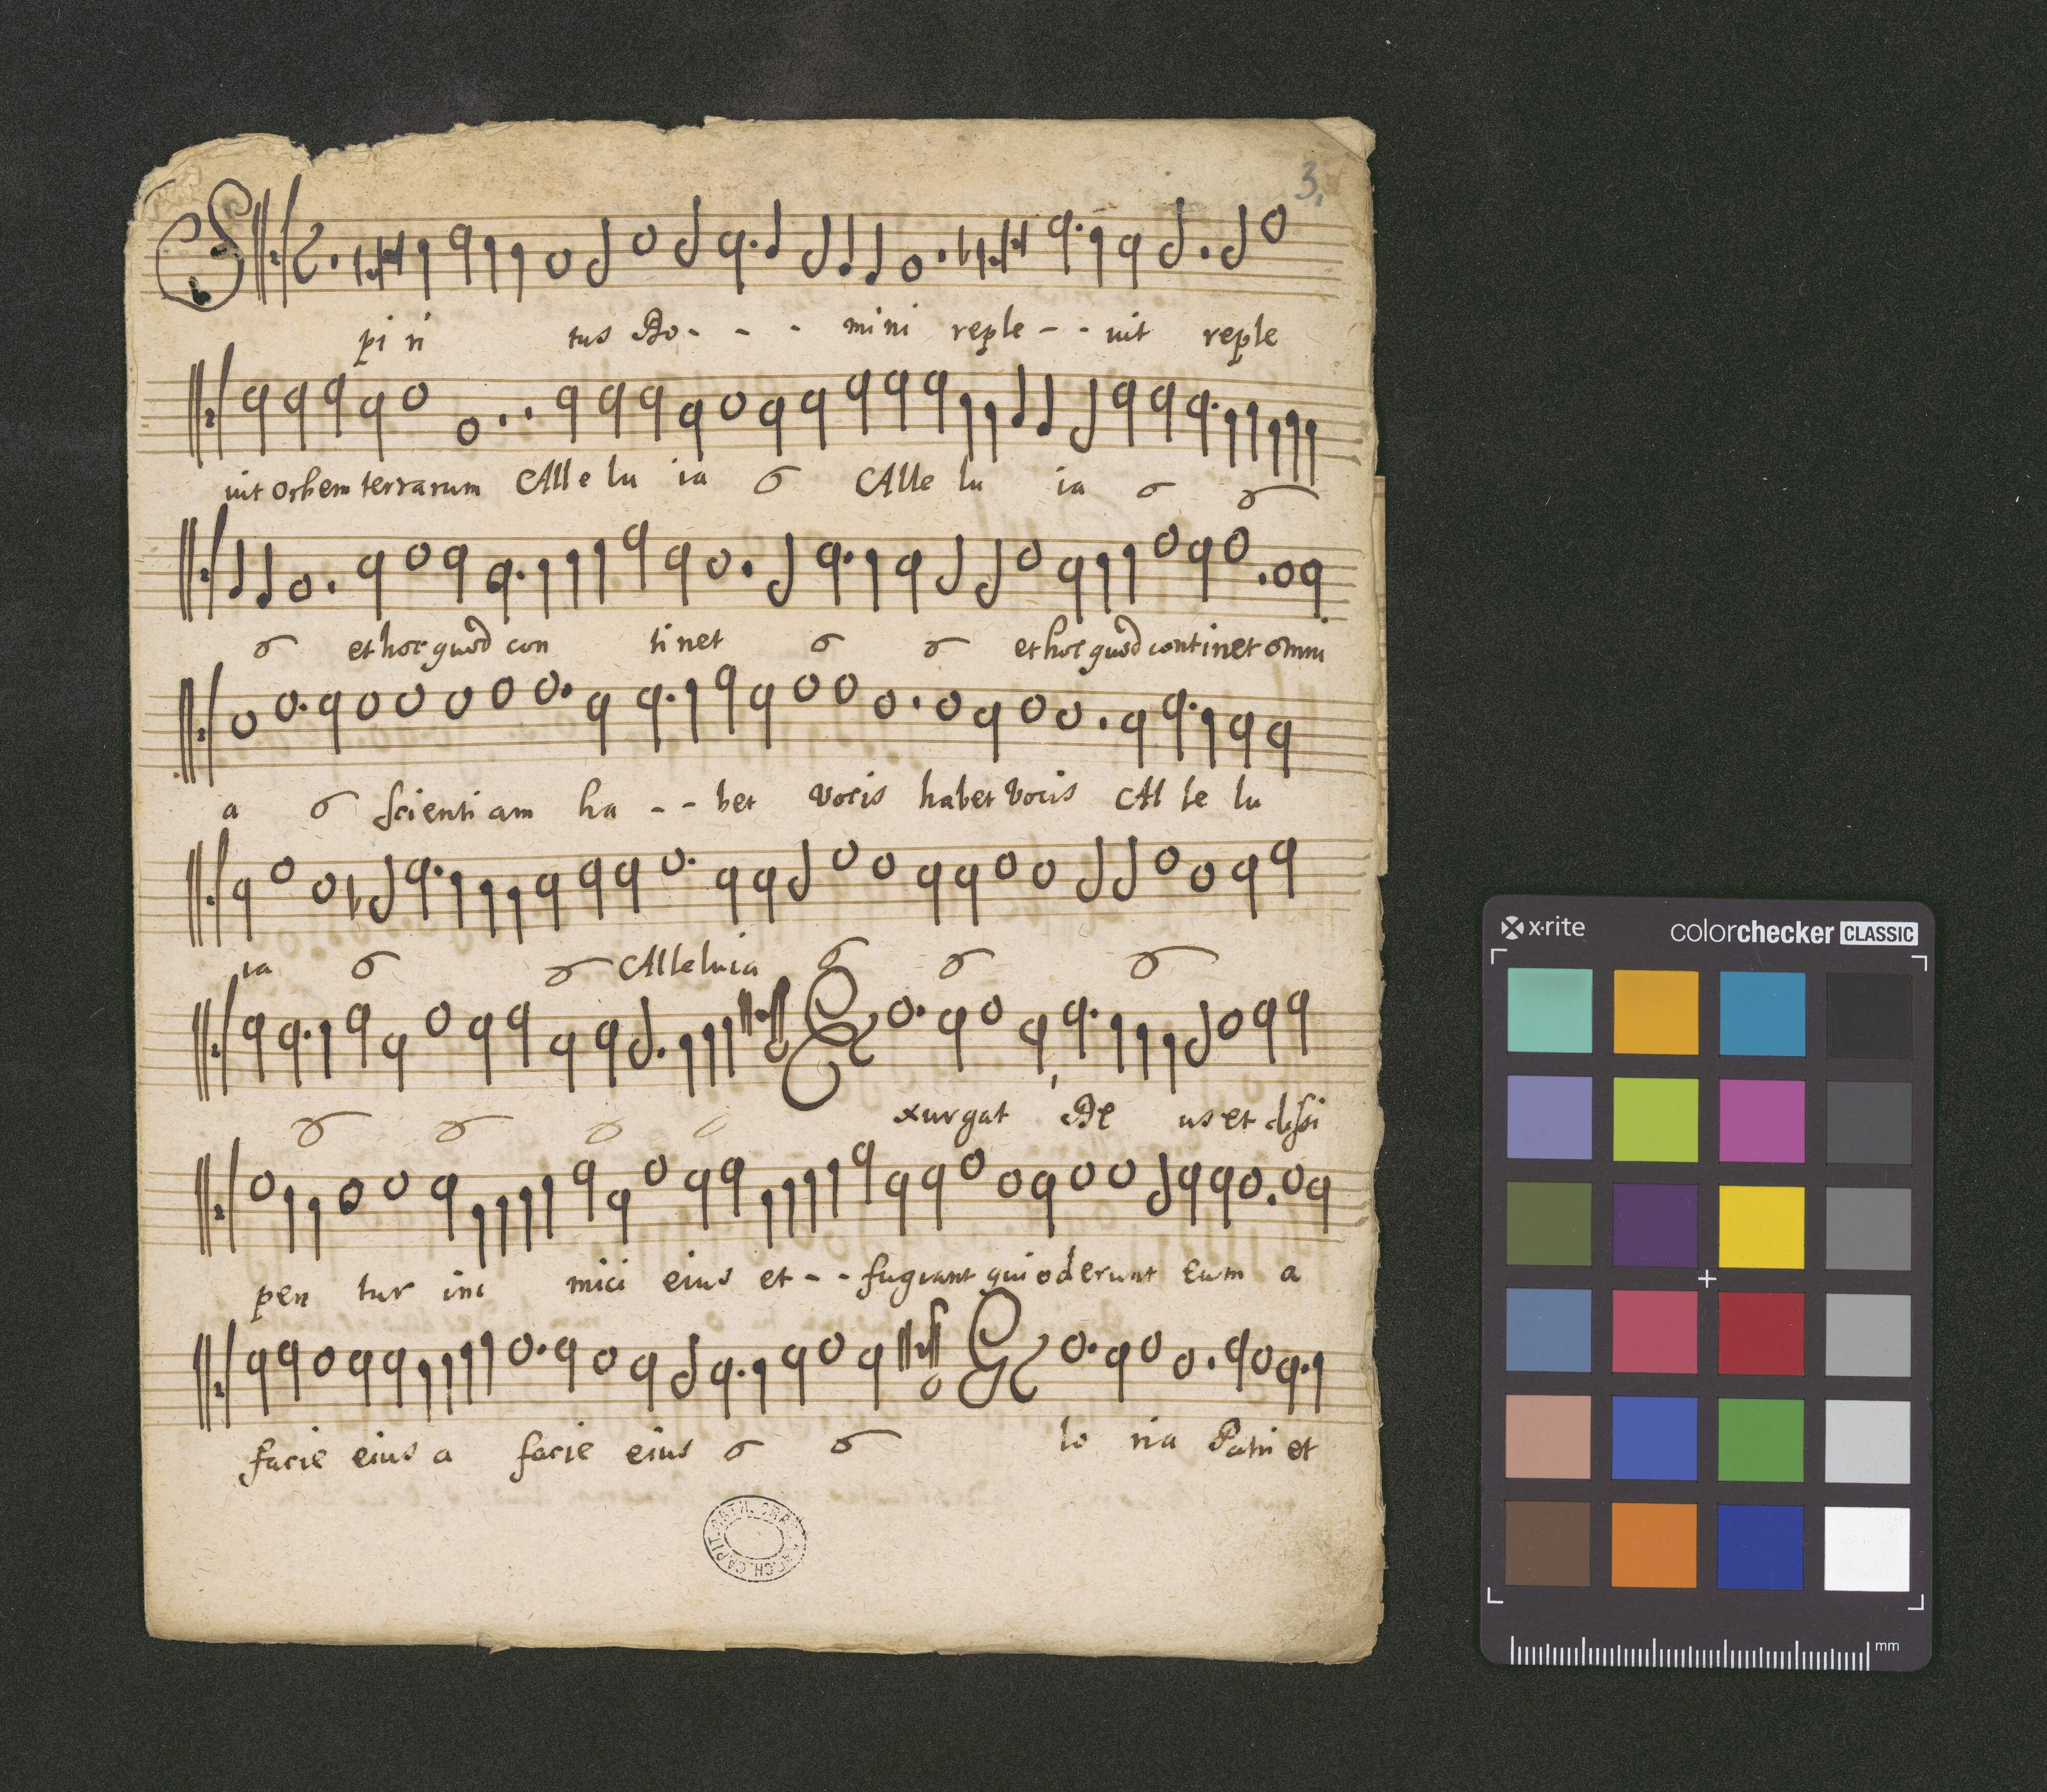 3.
S pi ri tus Do - - - mini reple - - uit reple
uit orbem terrarum Alle lu ia Alle lu ia
et hoc quod con tinet et hoc quod continet omni
a scienti am ha - - bet vocis habet vocis Al le lu
ia Alleluia
E xurgat De us et dissi
pen tur ini mici eius et - - fugiant qui oderunt eum a
facie eius a facie eius G lo ria Patri et
x·rite colorchecker CLASSIC
mm